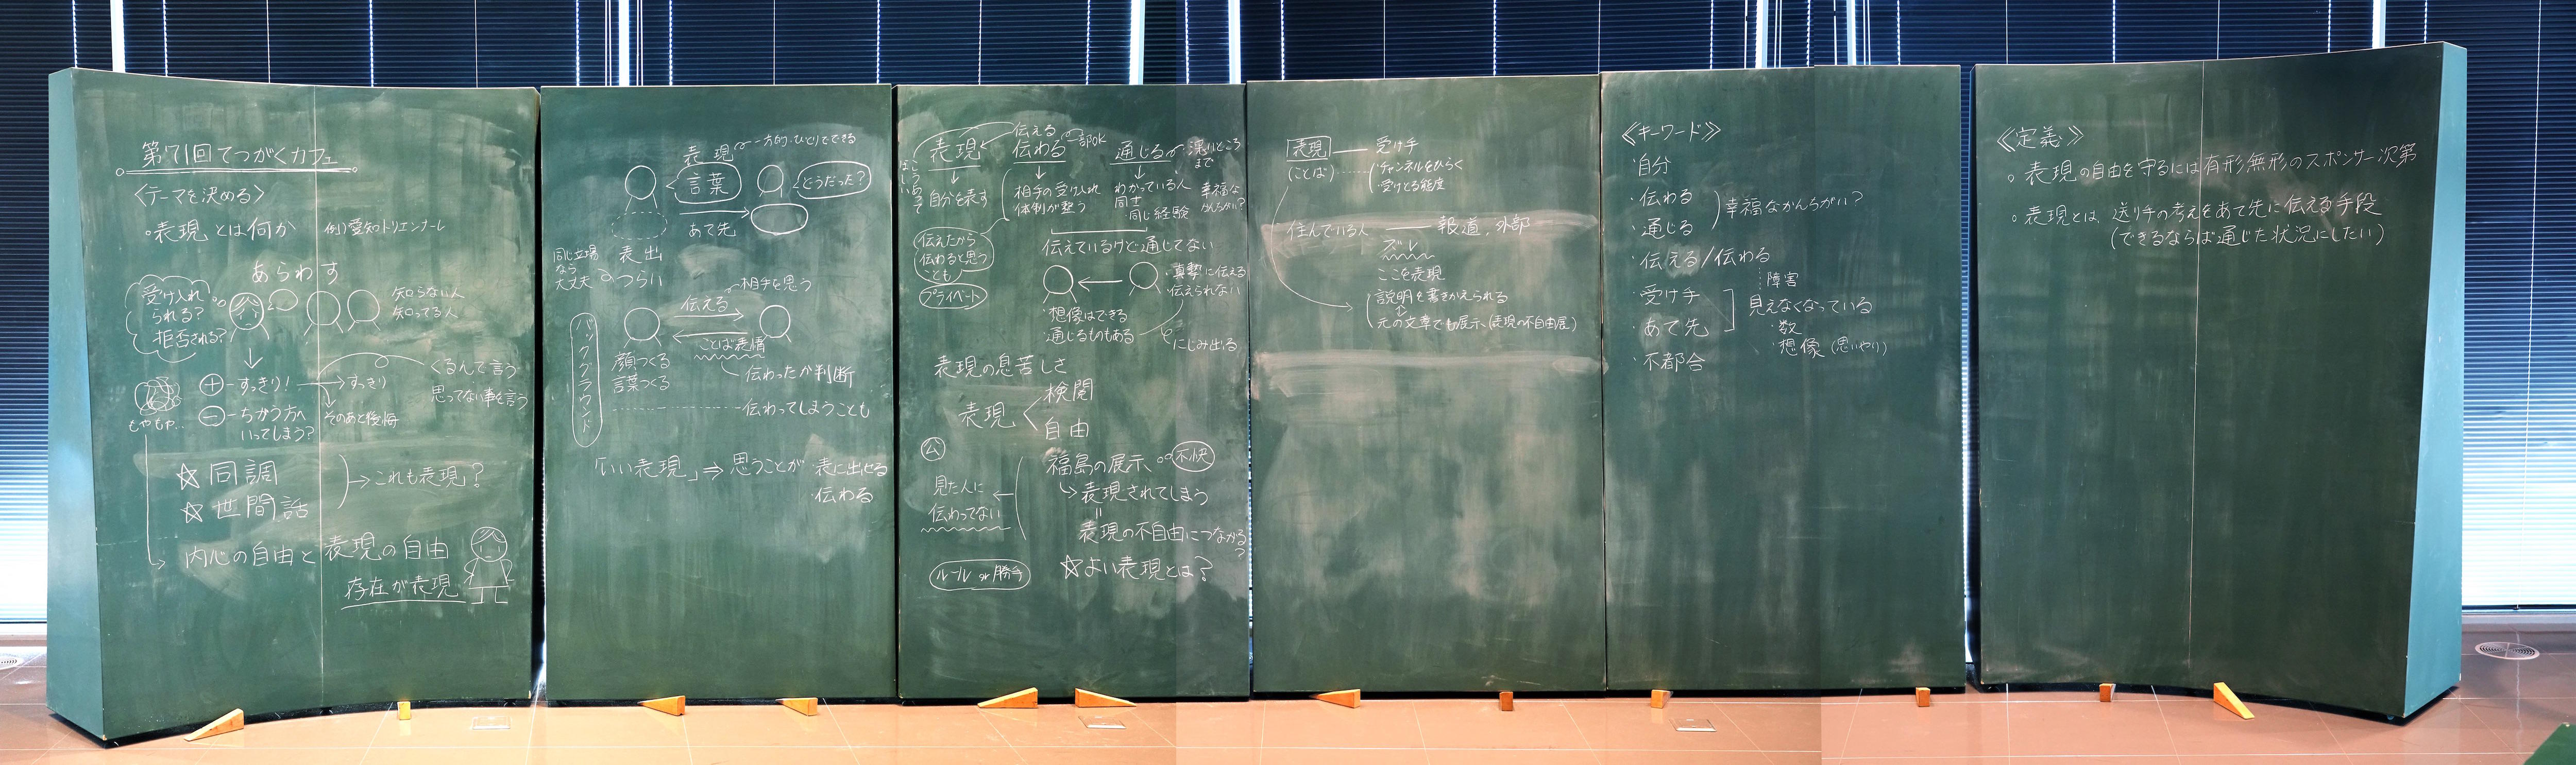 第71回てつがくカフェ
〈テーマを決める〉
・表現とは何か 例)愛知トリエンナーレ
あらわす
受け入れ
られる?
拒否される?
知らない人
知ってる人
もやもや…
⊕-すっきり!→すっきり
⊖-ちがう方へ
いってしまう?
そのあと後悔
くるんで言う
思ってない事を言う
☆同調
☆世間話
→これも表現?
内心の自由と表現の自由
存在が表現
表現 一方的・ひとりでできる
言葉
どうだった?
あて先
表出
つらい
同じ立場
なら
大丈夫
伝える
相手を思う
ことば 表情
バックグラウンド
顔つくる
言葉つくる
伝わったか判断
伝わってしまうことも
「いい表現」⇒思うことが 表に出せる
・伝わる
表現
伝える
伝わる
一部OK
通じる
深いところ
まで
自分を表す
相手の受け入れ
体制が整う
わかっている人
同士
・同じ経験
幸福な
かんちがい?
伝えたから
伝わると思う
ことも
プライベート
伝えているけど通じてない
・真摯に伝える
・伝えられない
・想像はできる
通じるものもある
にじみ出る
表現の息苦しさ
表現
検閲
自由
公
福島の展示
不快
↳表現されてしまう
=
表現の不自由につながる
?
見た人に
伝わってない
ルール or 勝手
☆よい表現とは?
表現 ― 受け手
(ことば)
・チャンネルをひらく
・受けとる態度
住んでいる人 ― 報道, 外部
ズレ
ここを表現
説明を書きかえられる
元の文章でも展示(表現の不自由展)
《キーワード》
・自分
・伝わる
・通じる
幸福なかんちがい?
・伝える/伝わる
障害
・受け手
・あて先
見えなくなっている
・数
・想像(思いやり)
・不都合
《定義》
。表現の自由を守るには有形無形のスポンサー次第
。表現とは、送り手の考えをあて先に伝える手段
(できるならば通じた状況にしたい)